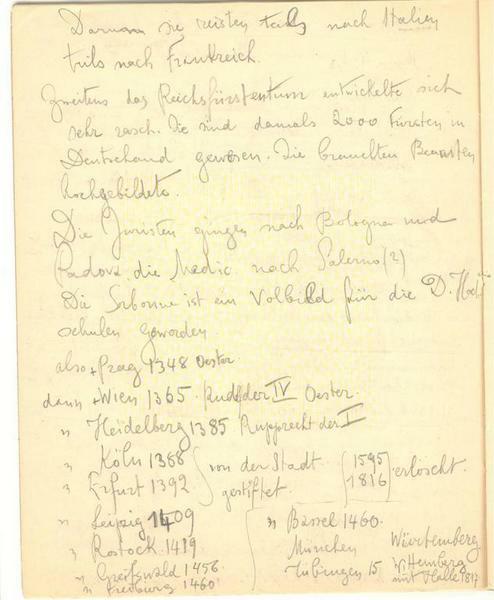 Darum sie reisten teils nach Italien
teils nach Frankreich.
Zweitens das Reichsfürstentum entwickelte sich
sehr rasch. Sie sind damals 2000 Fürsten in
Deutschand gewesen. Die brauchten Beamten
hochgebildete.
Die Juristen gingen nach Bologna und
Padova, die Medic. nach Salerno (2)
Die Sorbonne ist ein Volbild für die D. Hoch
schulen geworden.
also + Prag 1348 Oester.
dann + Wien 1365 Rudolf der IV Oester.
" Heidelberg 1385 Rupprecht der I
" Köln 1388 von der Stadt 1595 erlöscht.
" Erfurt 1392 gestiftet 1816
" Leipzig 1409 " Bassel 1460.
" Rostock 1419 München Würtemberg
" Greifswald 1456 Tübingen 15 Wittemberg
" Freiburg 1460 mit Halle 1817